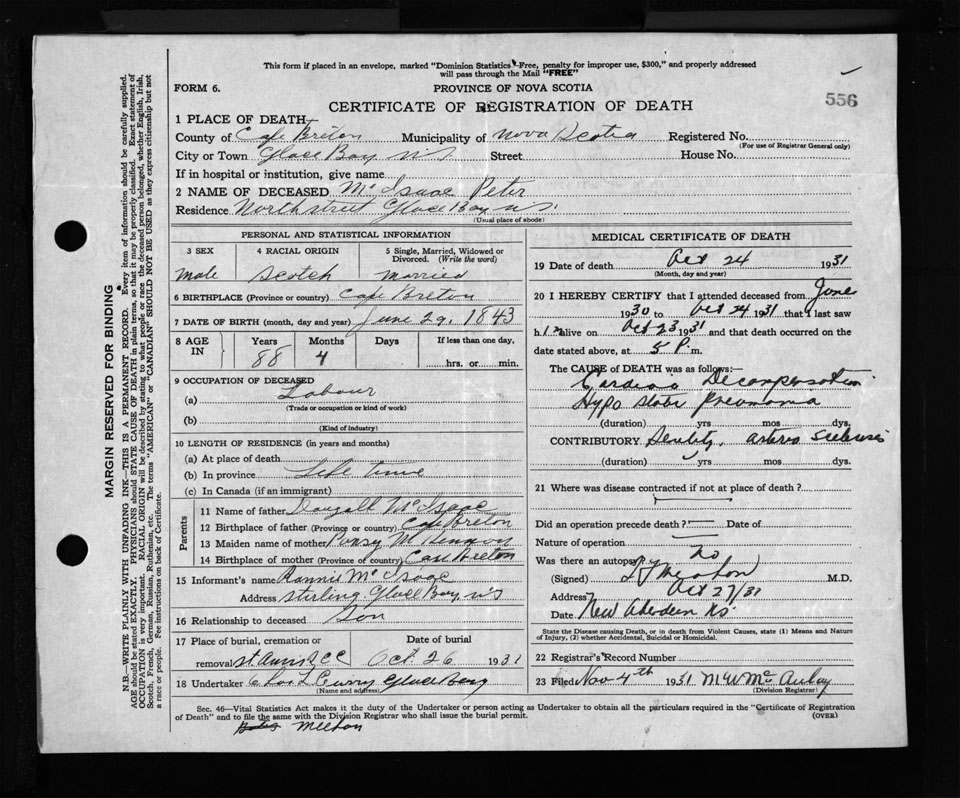 This form if placed in an envelope, marked "Dominion Statistics-Free, penalty for improper use, $300," and properly addressed
will pass through the Mail "FREE"
FORM 6.
PROVINCE OF NOVA SCOTIA
556
CERTIFICATE OF REGISTRATION OF DEATH
1 PLACE OF DEATH
County of Cape Breton Municipality of Nova Scotia Registered No.
(For use of Registrar General only)
City or Town Glace Bay NS Street House No.
If in hospital or institution, give name
2 NAME OF DECEASED McIsaac Peter
Residence North street Glace Bay NS.
(Usual place of abode)
PERSONAL AND STATISTICAL INFORMATION
3 SEX 4 RACIAL ORIGIN 5 Single, Married, Widowed or Divorced. (Write the word)
Male Scotch Married
6 BIRTHPLACE (Province or country) Cape Breton
7 DATE OF BIRTH (month, day and year) June 29, 1843
8 AGE IN Years Months Days If less than one day,
88 4 hrs. or min.
9 OCCUPATION OF DECEASED
(a) Labour
(Trade or occupation or kind of work)
(b)
(Kind of industry)
10 LENGTH OF RESIDENCE (in years and months)
(a) At place of death
(b) In province Life time
(c) In Canada (if an immigrant)
Parents
11 Name of father Dougall McIsaac
12 Birthplace of father (Province or country) Cape Breton
13 Maiden name of mother
14 Birthplace of mother (Province or country) Cape Breton
15 Informant's name Rannie McIsaac
Address Sterling Glace Bay, NS
16 Relationship to deceased Son
17 Place of burial, cremation or Date of burial
removal St Anns R C C Oct. 26 1931
18 Undertaker Chas L Curry Glace Bay
(Name and address)
MEDICAL CERTIFICATE OF DEATH
19 Date of death Oct 24 1931
(Month, day and year)
20 I HEREBY CERTIFY that I attended deceased from June
1930 to Oct 24 1931 that I last saw
h im alive on Oct 23 1931 and that death occurred on the
date stated above, at 5 P.m.
The CAUSE of DEATH was as follows:—
Cardiac Decompensation
Hypo static pneumonia
(duration) yrs mos dys.
CONTRIBUTORY Senility, arterio sclerosis
(duration) yrs mos dys.
21 Where was disease contracted if not at place of death?
Did an operation precede death? Date of
Nature of operation
Was there an autopsy? no
(Signed) M.D.
Address Oct 27/31
Date New Aberdeen NS
State the Disease causing Death, or in death from Violent Causes, state (1) Means and Nature
of Injury, (2) whether Accidental, Suicidal or Homicidal.
22 Registrar's Record Number
23 Filed Nov 4th 1931 M W McAulay
(Division Registrar)
Sec. 46—Vital Statistics Act makes it the duty of the Undertaker or person acting as Undertaker to obtain all the particulars required in the "Certificate of Registration
of Death" and to file the same with the Division Registrar who shall issue the burial permit.
(OVER)
MARGIN RESERVED FOR BINDING
N.B.—WRITE PLAINLY WITH UNFADING INK—THIS IS A PERMANENT RECORD. Every item of information should be carefully supplied.
AGE should be stated EXACTLY. PHYSICIANS should STATE CAUSE OF DEATH in plain terms, so that it may be properly classified. Exact statement of
OCCUPATION is very important. RACIAL ORIGIN will be described by stating to what people or race the deceased person belonged, whether English, Irish,
Scotch, French, German, Russian, Ruthenian, etc. The terms "AMERICAN" or "CANADIAN" SHOULD NOT BE USED as they express citizenship but not
a race or people. See instructions on back of Certificate.